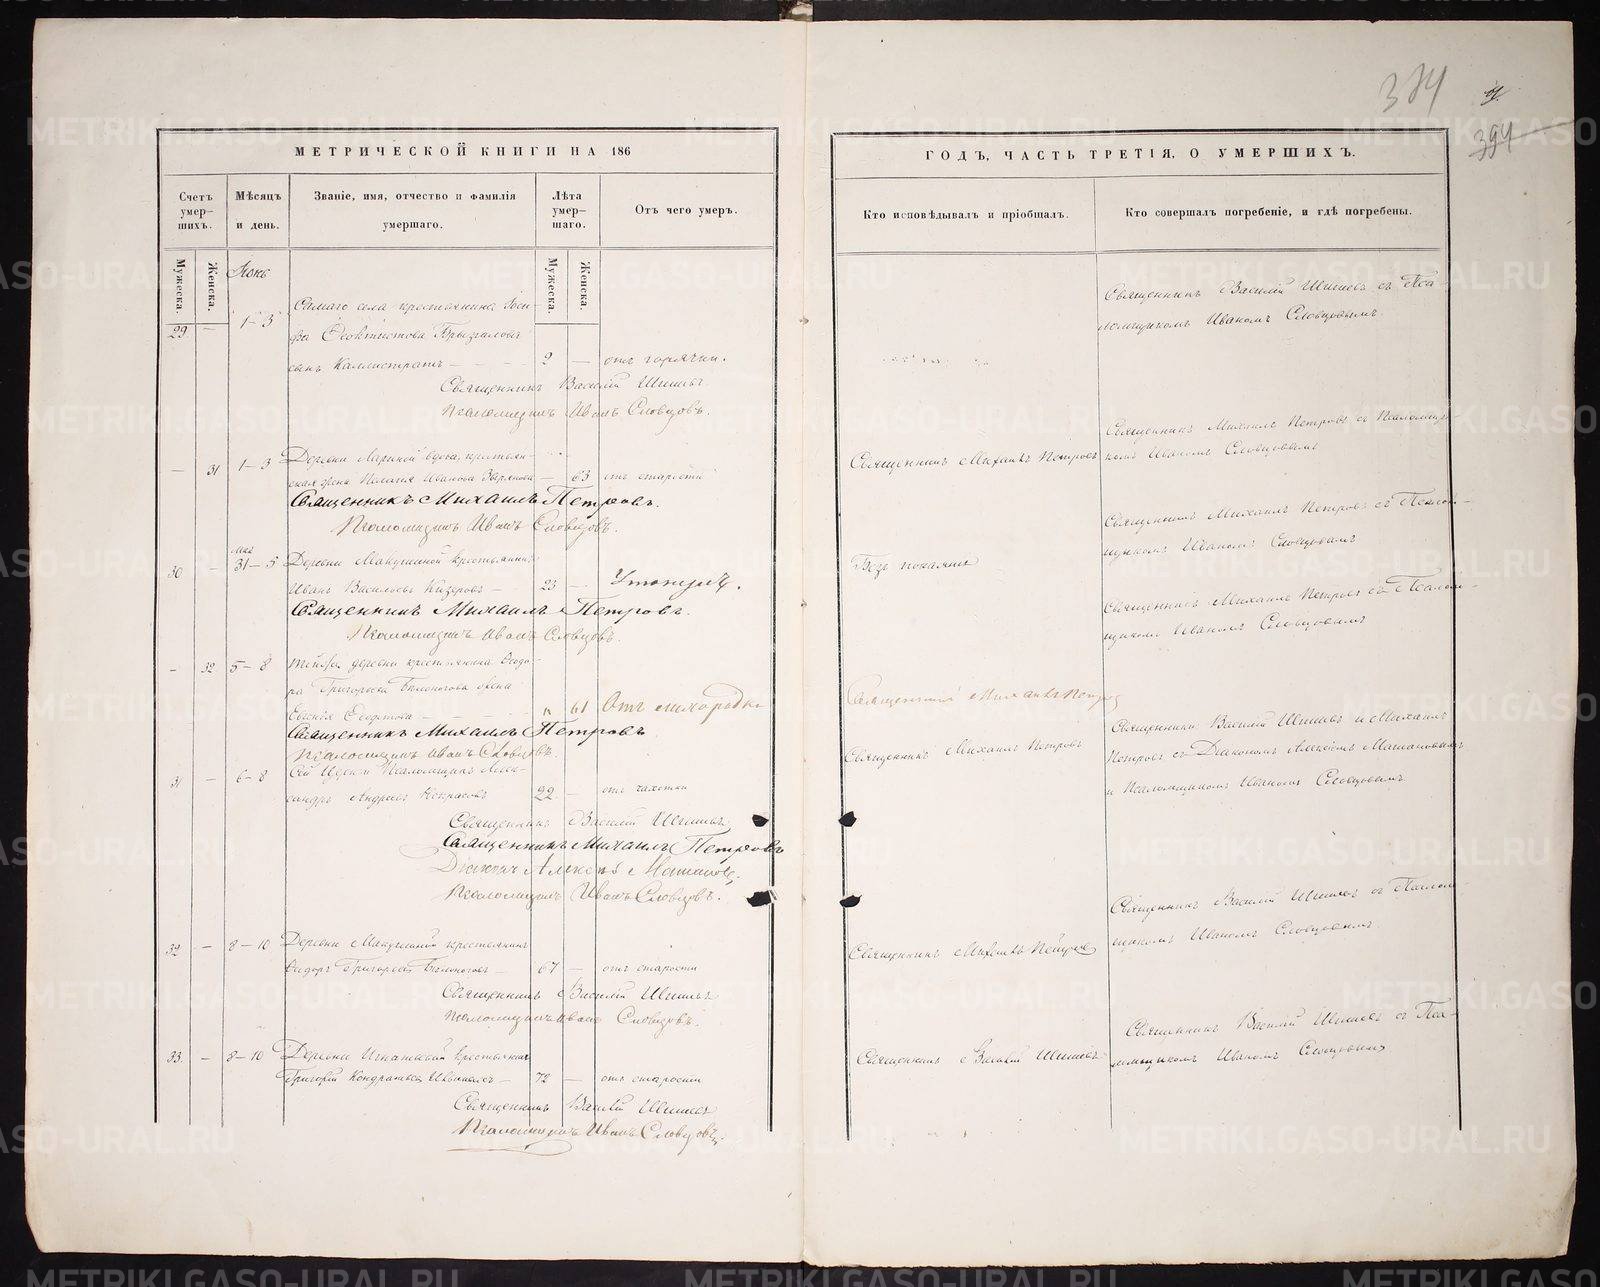 384
394
МЕТРИЧЕСКОЙ КНИГИ НА 186
ГОДЪ, ЧАСТЬ ТРЕТІЯ, О УМЕРШИХЪ.
Счетъ умер-шихъ.
Мѣсяцъ и день.
Званіе, имя, отчество и фамилія умершаго.
Лѣта умер-шаго.
Отъ чего умеръ.
Кто исповѣдывалъ и пріобщалъ.
Кто совершалъ погребеніе, и гдѣ погребены.
Мужеска.
Женска.
Мужеска.
Женска.
29 — 1–3
Самаго села крестьянина
сынъ Каллистратъ — 2 — отъ горячки.
Священникъ Василій Шишевъ съ Пса-
ломщикомъ Иваномъ Словцовымъ
Священникъ Василій Шишевъ
Псаломщикъ Иванъ Словцовъ.
— 31 1–3 Деревни вдова, крестьян-
Иванова — 63 отъ старости
Священникъ Михаилъ Петровъ
Священникъ Михаилъ Петровъ съ Псаломщи-
комъ Иваномъ Словцовымъ
Священникъ Михаилъ Петровъ.
Псаломщикъ Иванъ Словцовъ.
30 — Мая 31–5 Деревни Макушиной крестьянинъ
Иванъ Васильевъ — 23 — Утонулъ.
Безъ покаянія
Священникъ Михаилъ Петровъ съ Псалом-
щикомъ Иваномъ Словцовымъ
Священникъ Михаилъ Петровъ.
Псаломщикъ Иванъ Словцовъ.
— 32 5–8 деревни крестьянина Ѳеодо-
ра Григорьева Бѣлоногова жена
Евгенія — 61 Отъ лихорадки
Священникъ Михаилъ Петровъ
Священникъ Михаилъ Петровъ съ Псалом-
щикомъ Иваномъ Словцовымъ
Священникъ Михаилъ Петровъ
Псаломщикъ Иванъ Словцовъ.
31 — 6–8 Псаломщикъ Алек-
сандръ Андреевъ Некрасовъ 22 — отъ чахотки
Священникъ Михаилъ Петровъ
Священники Василій Шишевъ и Михаилъ
Петровъ съ Діакономъ Алексѣемъ
и Псаломщикомъ Иваномъ Словцовымъ
Священникъ Василій Шишевъ
Священникъ Михаилъ Петровъ
Діаконъ Алексѣй
Псаломщикъ Иванъ Словцовъ.
32 — 8–10 Деревни Макушиной крестьянинъ
Ѳедоръ Григорьевъ Бѣлоноговъ — 67 — отъ старости
Священникъ Михаилъ Петровъ
Священникъ Василій Шишевъ съ Псалом-
щикомъ Иваномъ Словцовымъ.
Священникъ Василій Шишевъ
Псаломщикъ Иванъ Словцовъ.
33 — 8–10 Деревни Игнатьевой крестьянинъ
Григорій Кондратьевъ — 72 — отъ старости
Священникъ Василій Шишевъ
Священникъ Василій Шишевъ съ Пса-
ломщикомъ Иваномъ Словцовымъ
Священникъ Василій Шишевъ
Псаломщикъ Иванъ Словцовъ.
METRIKI.GASO-URAL.RU